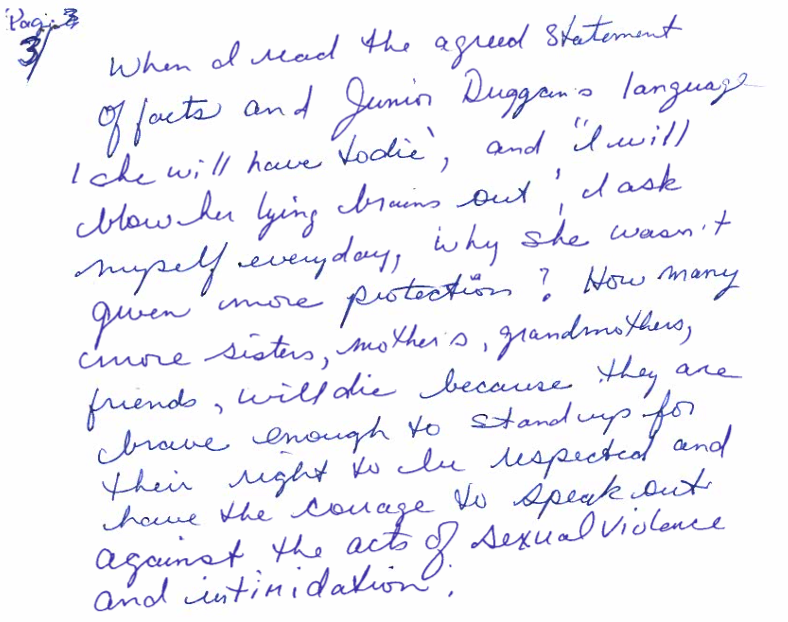 Page 3
3/
When I read the agreed Statement
of facts and Junior Duggan's language
'she will have to die', and "I will
blow her lying brains out', I ask
myself everyday, why she wasn't
given more protection? How many
more sisters, mother's, grandmothers,
friends, will die because they are
brave enough to stand up for
their right to be respected and
have the courage to speak out
against the acts of sexual violence
and intimidation.